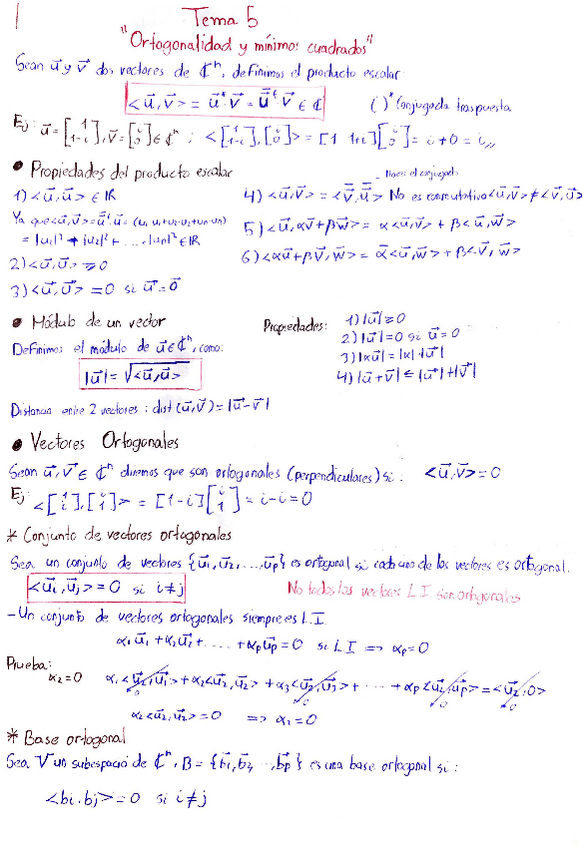 Tema 5
"Ortogonalidad y mínimos cuadrados"
Sean u⃗ y v⃗ dos vectores de ℂⁿ, definimos el producto escalar
<u⃗,v⃗> = u⃗*·v⃗ = ū⃗ᵗ·v⃗ ∈ ℂ ( )* Conjugada traspuesta
Ej: u⃗=[1 1-i], v⃗=[i 0] ∈ ℂⁿ ; <[1 1-i],[i 0]> = [1 1+i][i 0] = i+0 = i,,
• Propiedades del producto escalar
1) <u⃗,u⃗> ∈ ℝ
Ya que <u⃗,u⃗> = ū⃗ᵗ·u⃗ = (u₁·u₁+u₂·u₂+un·un)
= |u₁|² + |u₂|² + ... |un|² ∈ ℝ
2) <u⃗,u⃗> ≥ 0
3) <u⃗,u⃗> = 0 si u⃗=0⃗
Hacer el conjugado
4) <u⃗,v⃗> = <v⃗,u⃗> No es conmutativa <u⃗,v⃗> ≠ <v⃗,u⃗>
5) <u⃗,αv⃗+βw⃗> = α<u⃗,w⃗> + β<u⃗,w⃗>
6) <αu⃗+βv⃗,w⃗> = ᾱ<u⃗,w⃗> + β<v⃗,w⃗>
• Módulo de un vector
Definimos el módulo de u⃗ ∈ ℂⁿ, como:
|u⃗| = √<u⃗,u⃗>
Propiedades: 1) |u⃗| ≥ 0
2) |u⃗| = 0 si u⃗ = 0
3) |αu⃗| = |α|·|u⃗|
4) |u⃗+v⃗| ≤ |u⃗|+|v⃗|
Distancia entre 2 vectores : dist(u⃗,v⃗) = |u⃗-v⃗|
• Vectores Ortogonales
Sean u⃗,v⃗ ∈ ℂⁿ diremos que son ortogonales (perpendiculares) si : <u⃗,v⃗> = 0
Ej: <[1 i],[i 1]> = [1 -i][i 1] = i-i = 0
* Conjunto de vectores ortogonales
Sea un conjunto de vectores {u⃗₁,u⃗₂,...,u⃗p} es ortogonal si cada uno de los vectores es ortogonal.
<u⃗i,u⃗j> = 0 si i≠j No todos los vectores LI son ortogonales
-Un conjunto de vectores ortogonales siempre es L.I.
α₁u⃗₁+α₂u⃗₂+....+αpu⃗p=0 si LI => αp=0
Prueba:
α₂=0 α₁<u⃗₂,u⃗₁>+α₂<u⃗₂,u⃗₂>+α₃<u⃗₂,u⃗₃>+...+αp<u⃗₂,u⃗p>=<u⃗₂,0>
0 0 0 0
α₂<u⃗₂,u⃗₂>=0 => α₂=0
* Base ortogonal
Sea V un subespacio de ℂⁿ, B = {b⃗₁,b⃗₂,...,b⃗p} es una base ortogonal si :
<bi,bj>=0 si i≠j